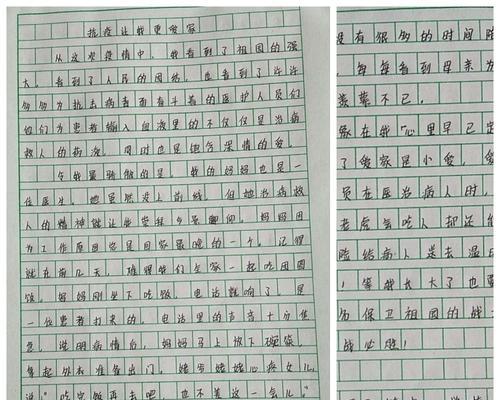 抗疫让我更爱家
从这次疫情中，我看到了祖国的强
大，看到了人民的团结，也看到了许许
多多为抗击病毒而奋斗着的医护人员们
他们为患者输入血液里的不仅仅是治病
救人的药液，同时也是饱含深情的爱。
令我最骄傲的是，我的妈妈也是一
位医生，她虽然没上前线，但她治病救
人的精神
妈妈因
为工作原因总是回家最晚的一个。记得
就在前几天，难得我们全家一起吃团圆
饭，妈妈刚坐下吃饭，电话就响了，是
一位患者打来的。电话里的声音十分焦
急，说明病情后，妈妈马上放下碗筷，
拿起外衣准备出门。姥爷姥姥心疼女儿
说“吃完饭再去吧，也不差这一会儿”
没有很多的时间陪
每每看到母亲为
羡慕不已。
家在我心里早已定
了爱家是小爱，爱
员在医治病人时，
老虎会吃人却还
险给病人
！等我长大了也要
为保卫祖国的战
战必胜！